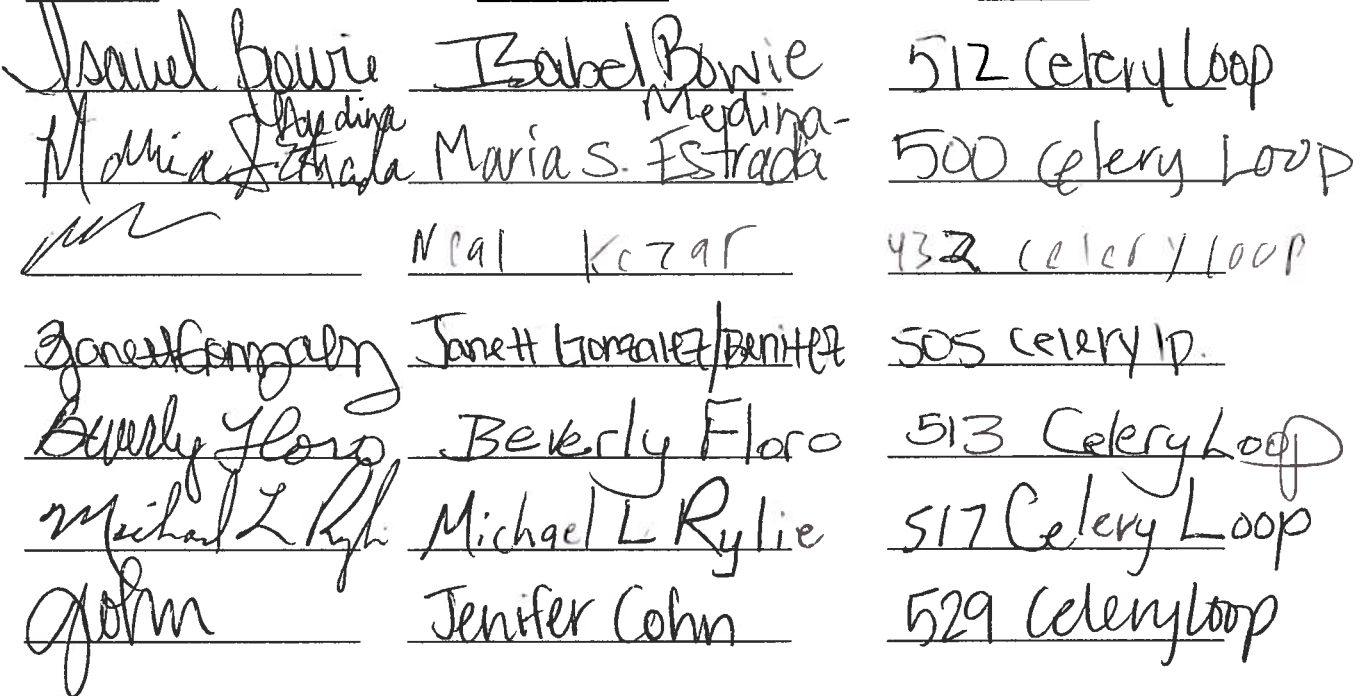 Isabel Bowie Isabel Bowie 512 Celery Loop
Maria S. Medina Estrada Maria S. Medina-Estrada 500 Celery Loop
Neal Kezar 432 celery loop
Janett Gonzalez Janett Gonzalez/Benitez 505 celery lp.
Beverly Floro Beverly Floro 513 Celery Loop
Michael L Rylie Michael L Rylie 517 Celery Loop
JCohn Jenifer Cohn 529 Celery Loop